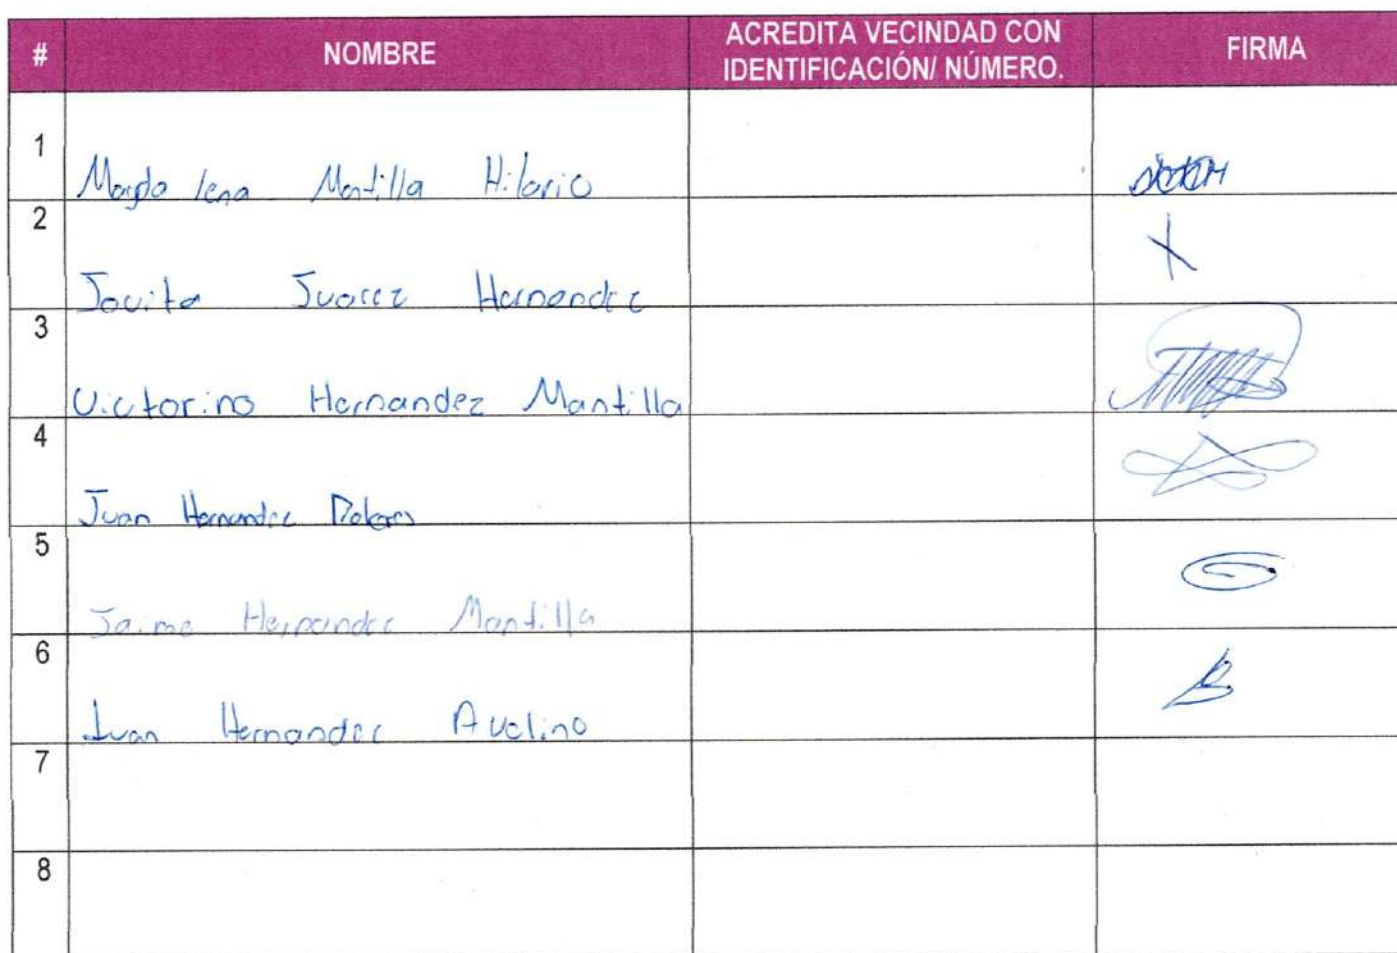 # NOMBRE ACREDITA VECINDAD CON IDENTIFICACIÓN/ NÚMERO. FIRMA
1 Magdalena Mantilla Hilario
2 Jovita Juarez Hernandez
3 Victorino Hernandez Mantilla
4 Juan Hernandez Dolores
5 Jaime Hernandez Mantilla
6 Juan Hernandez Avelino
7
8